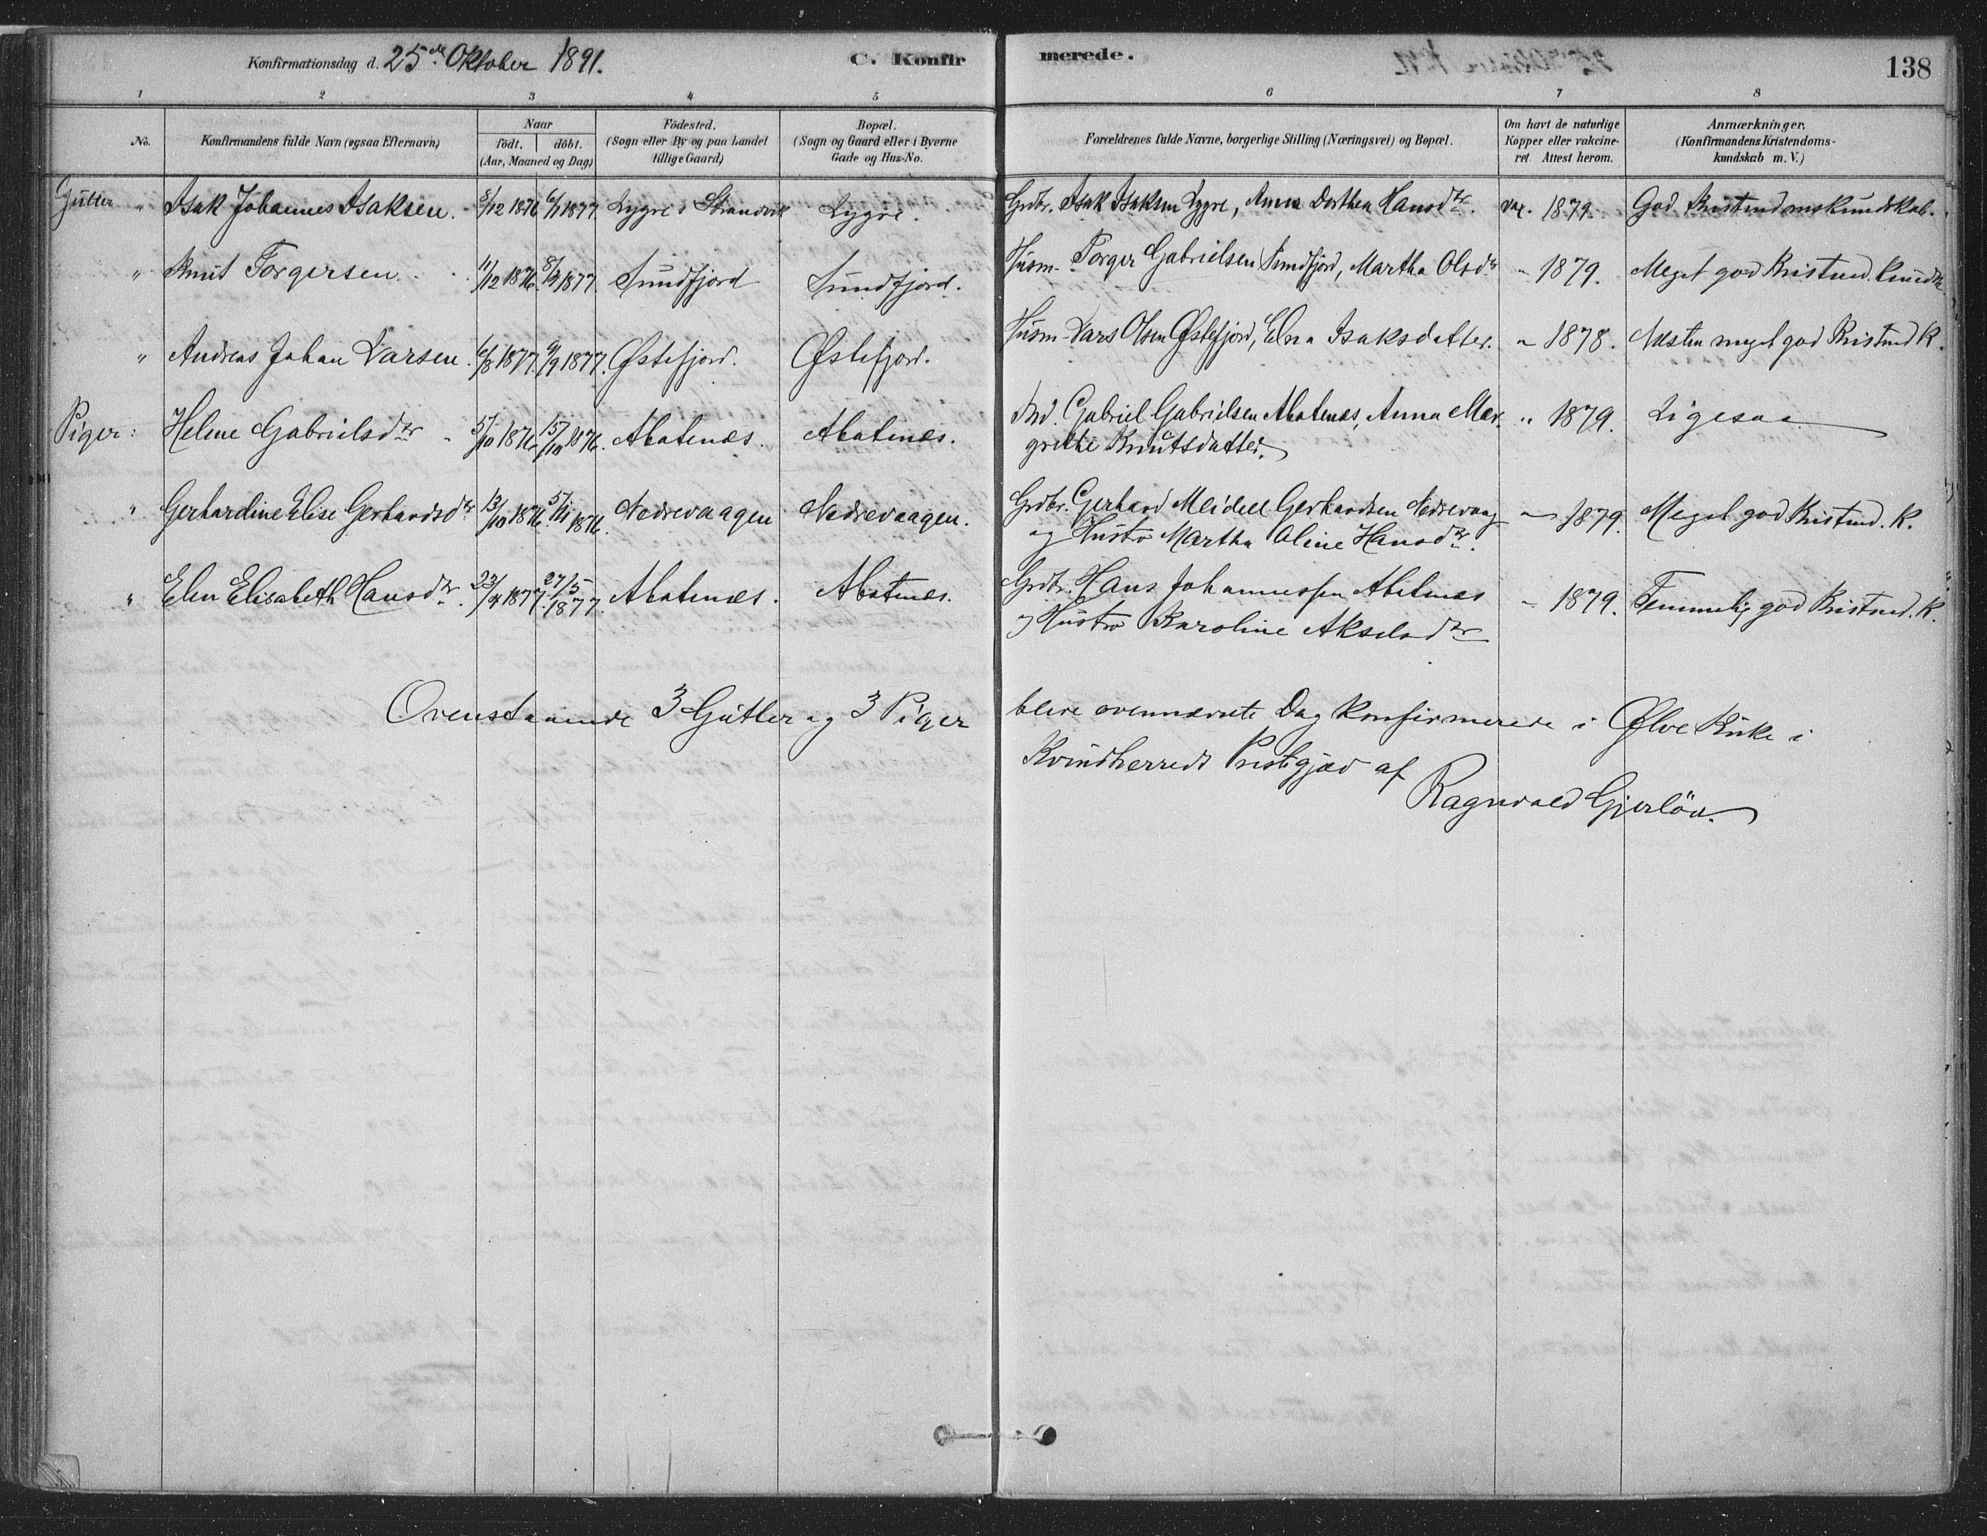 Konfirmationsdag d. 25de Oktober 1891. C. Konfir merede. 138
1 2 3 4 5 6 7 8
No. Konfirmandens fulde Navn (ogsaa Efternavn) Naar født. døbt. (Aar, Maaned og Dag) Fødested. (Sogn eller By og paa Landet tillige Gaard) Bopæl. (Sogn og Gaard eller i Byerne Gade og Hus-No. Forældrenes fulde Navne, borgerlige Stilling (Næringsvei) og Bopæl. Om havt de naturlige Kopper eller vakcineret. Attest herom. Anmærkninger. (Konfirmandens Kristendomskundskab m. V.)
Gutter " Isak Johannes Isaksen. 8/12 1876 6/1 1877. Lygre i Strandvik Lygre. Grdbr. Isak Isaksen Lygre, Anna Dorthea Hansdtr. vax. 1879. God Kristendomskundskab.
" Knut Torgersen. 11/12 1876. 8/4 1877. Sundfjord Sundfjord. Husm. Torger Gabrielsen Sundfjord, Martha Olsdr " 1879. Meget god Kristend. Kundsk.
" Andreas Johan Larsen. 6/8 1877. 9/9 1877. Østefjord. Østefjord. Husm. Lars Olsen Østefjord, Elna Isaksdatter. " 1878. Næsten meget god Kristend K.
Piger: Helene Gabrielsdtr 5/10 1876. 15/10 1876. Abatenæs. Abatenæs. Ind. Gabriel Gabrielsen Abatenæs, Anna Mar-
grethe Knutsdatter. " 1879. Ligesaa
" Gerhardine Elise Gerhardsdtr 13/10 1876. 5/11 1876. Nedrevaagen Nedrevaagen. Grdbr. Gerhard Meidell Gerhardsen Nedrevaag
og Hustro Martha Oline Hansdtr. " 1879. Meget god Kristend. K.
" Elen Elisabeth Hansdtr. 23/4 1877. 27/5 1877. Abatenæs. Abatenæs. Grdbr. Hans Johannessen Abatenæs
og Hustro Karoline Akselsdtr " 1879. Temmelig god Kristend. K.
Ovenstaaende 3 Gutter og 3 Piger bleve ovennævnte Dag konfirmerede i Ølve Kirke i
Kvindherreds Prestegjæld af
Ragnvald Gjerløw.